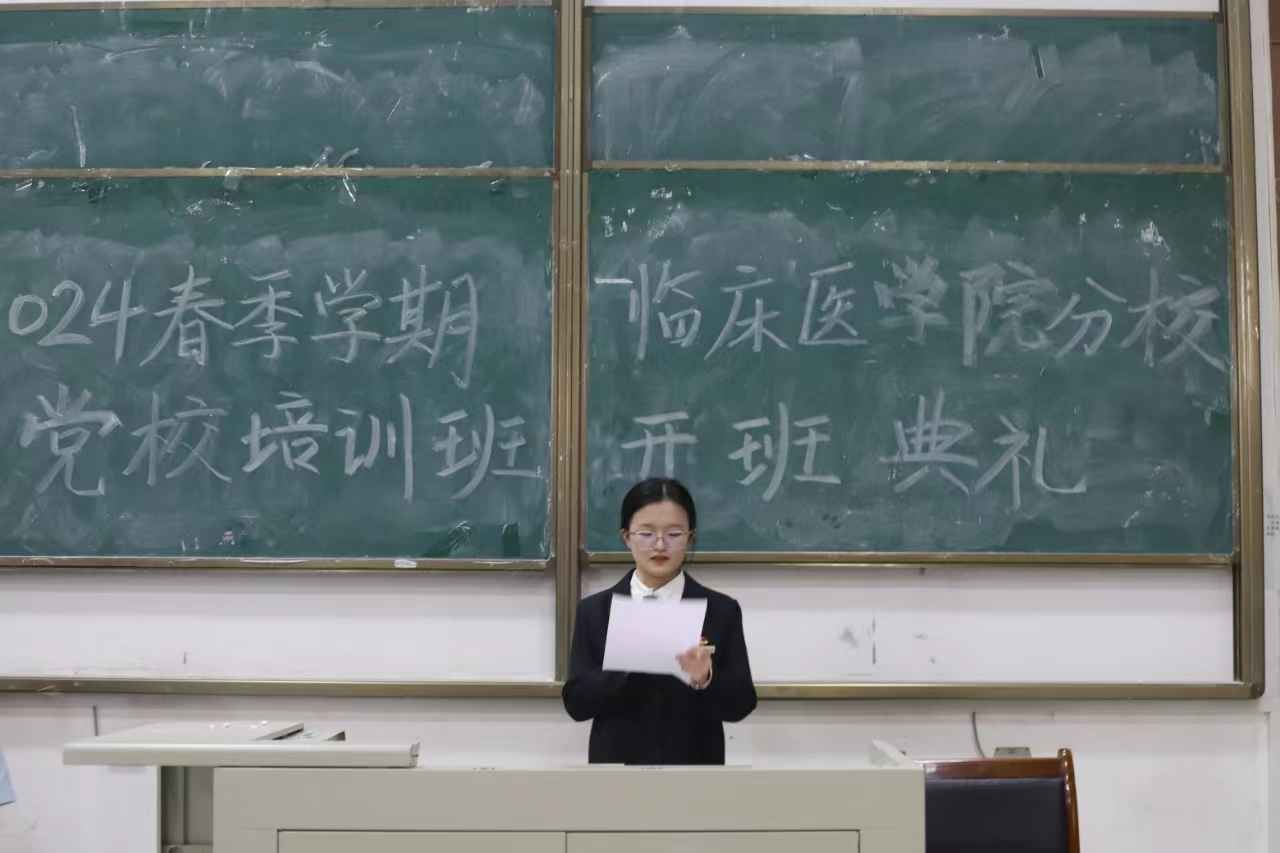 024春季学期一临床医学院分校
党校培训班开班典礼